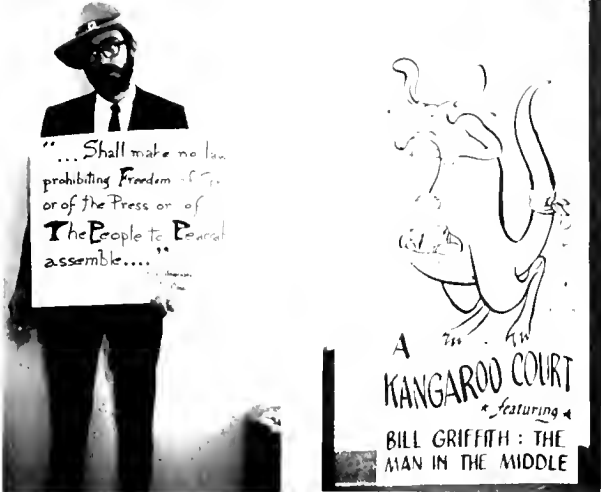 "...Shall make no law
prohibiting Freedom of
or of the Press or of
The People to
assemble...."
A
KANGAROO COURT
* featuring *
BILL GRIFFITH : THE
MAN IN THE MIDDLE